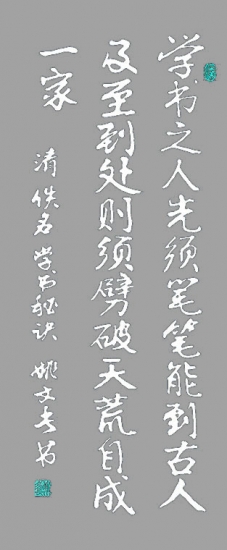 学书之人先须笔笔能到古人
及至到处则须劈破天荒自成
一家
清佚名学书秘诀 姚文奎书